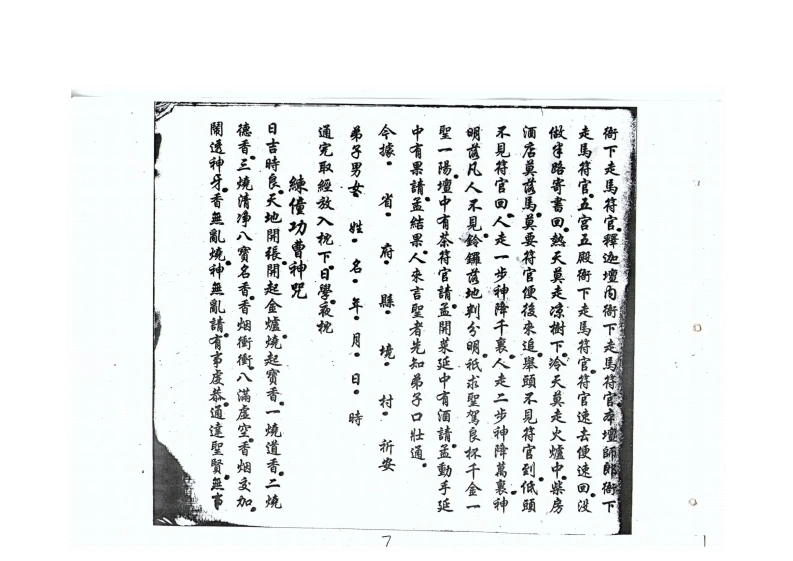 衙下走馬符官。釋迦壇內衙下走馬符官。本壇師郎衙下
走馬符官。五宮五殿衙下走馬符官。符官速去便速回。沒
做半路寄書回。熱天莫走凉樹下。冷天莫走火爐中。柴房
酒店莫落馬。莫要符官便後來追。舉頭不見符官到。低頭
不見符官回。人走一步神降千裏。人走二步神降萬裏神
明落凡人不見。鈴鑼落地判分明。祇求聖駕良杯千金一
聖一陽。壇中有茶符官請。孟開菜延中有酒請。孟動手延
中有果請。孟結果。人來吉聖者先知弟子口壯通。
今據。省。府。縣。境。村。祈安
弟子男女。姓。名。年。月。日。時
通完取經放入枕下。日學夜枕
練僮功曹神咒
日吉時良。天地開張。開起金爐。燒起寶香。一燒道香。二燒
德香。三燒清净八寶名香。香烟衝衝。八滿虛空。香烟交加。
鬧透神牙。香無亂燒。神無亂請。有事虔恭。通達聖賢。無事
7
1